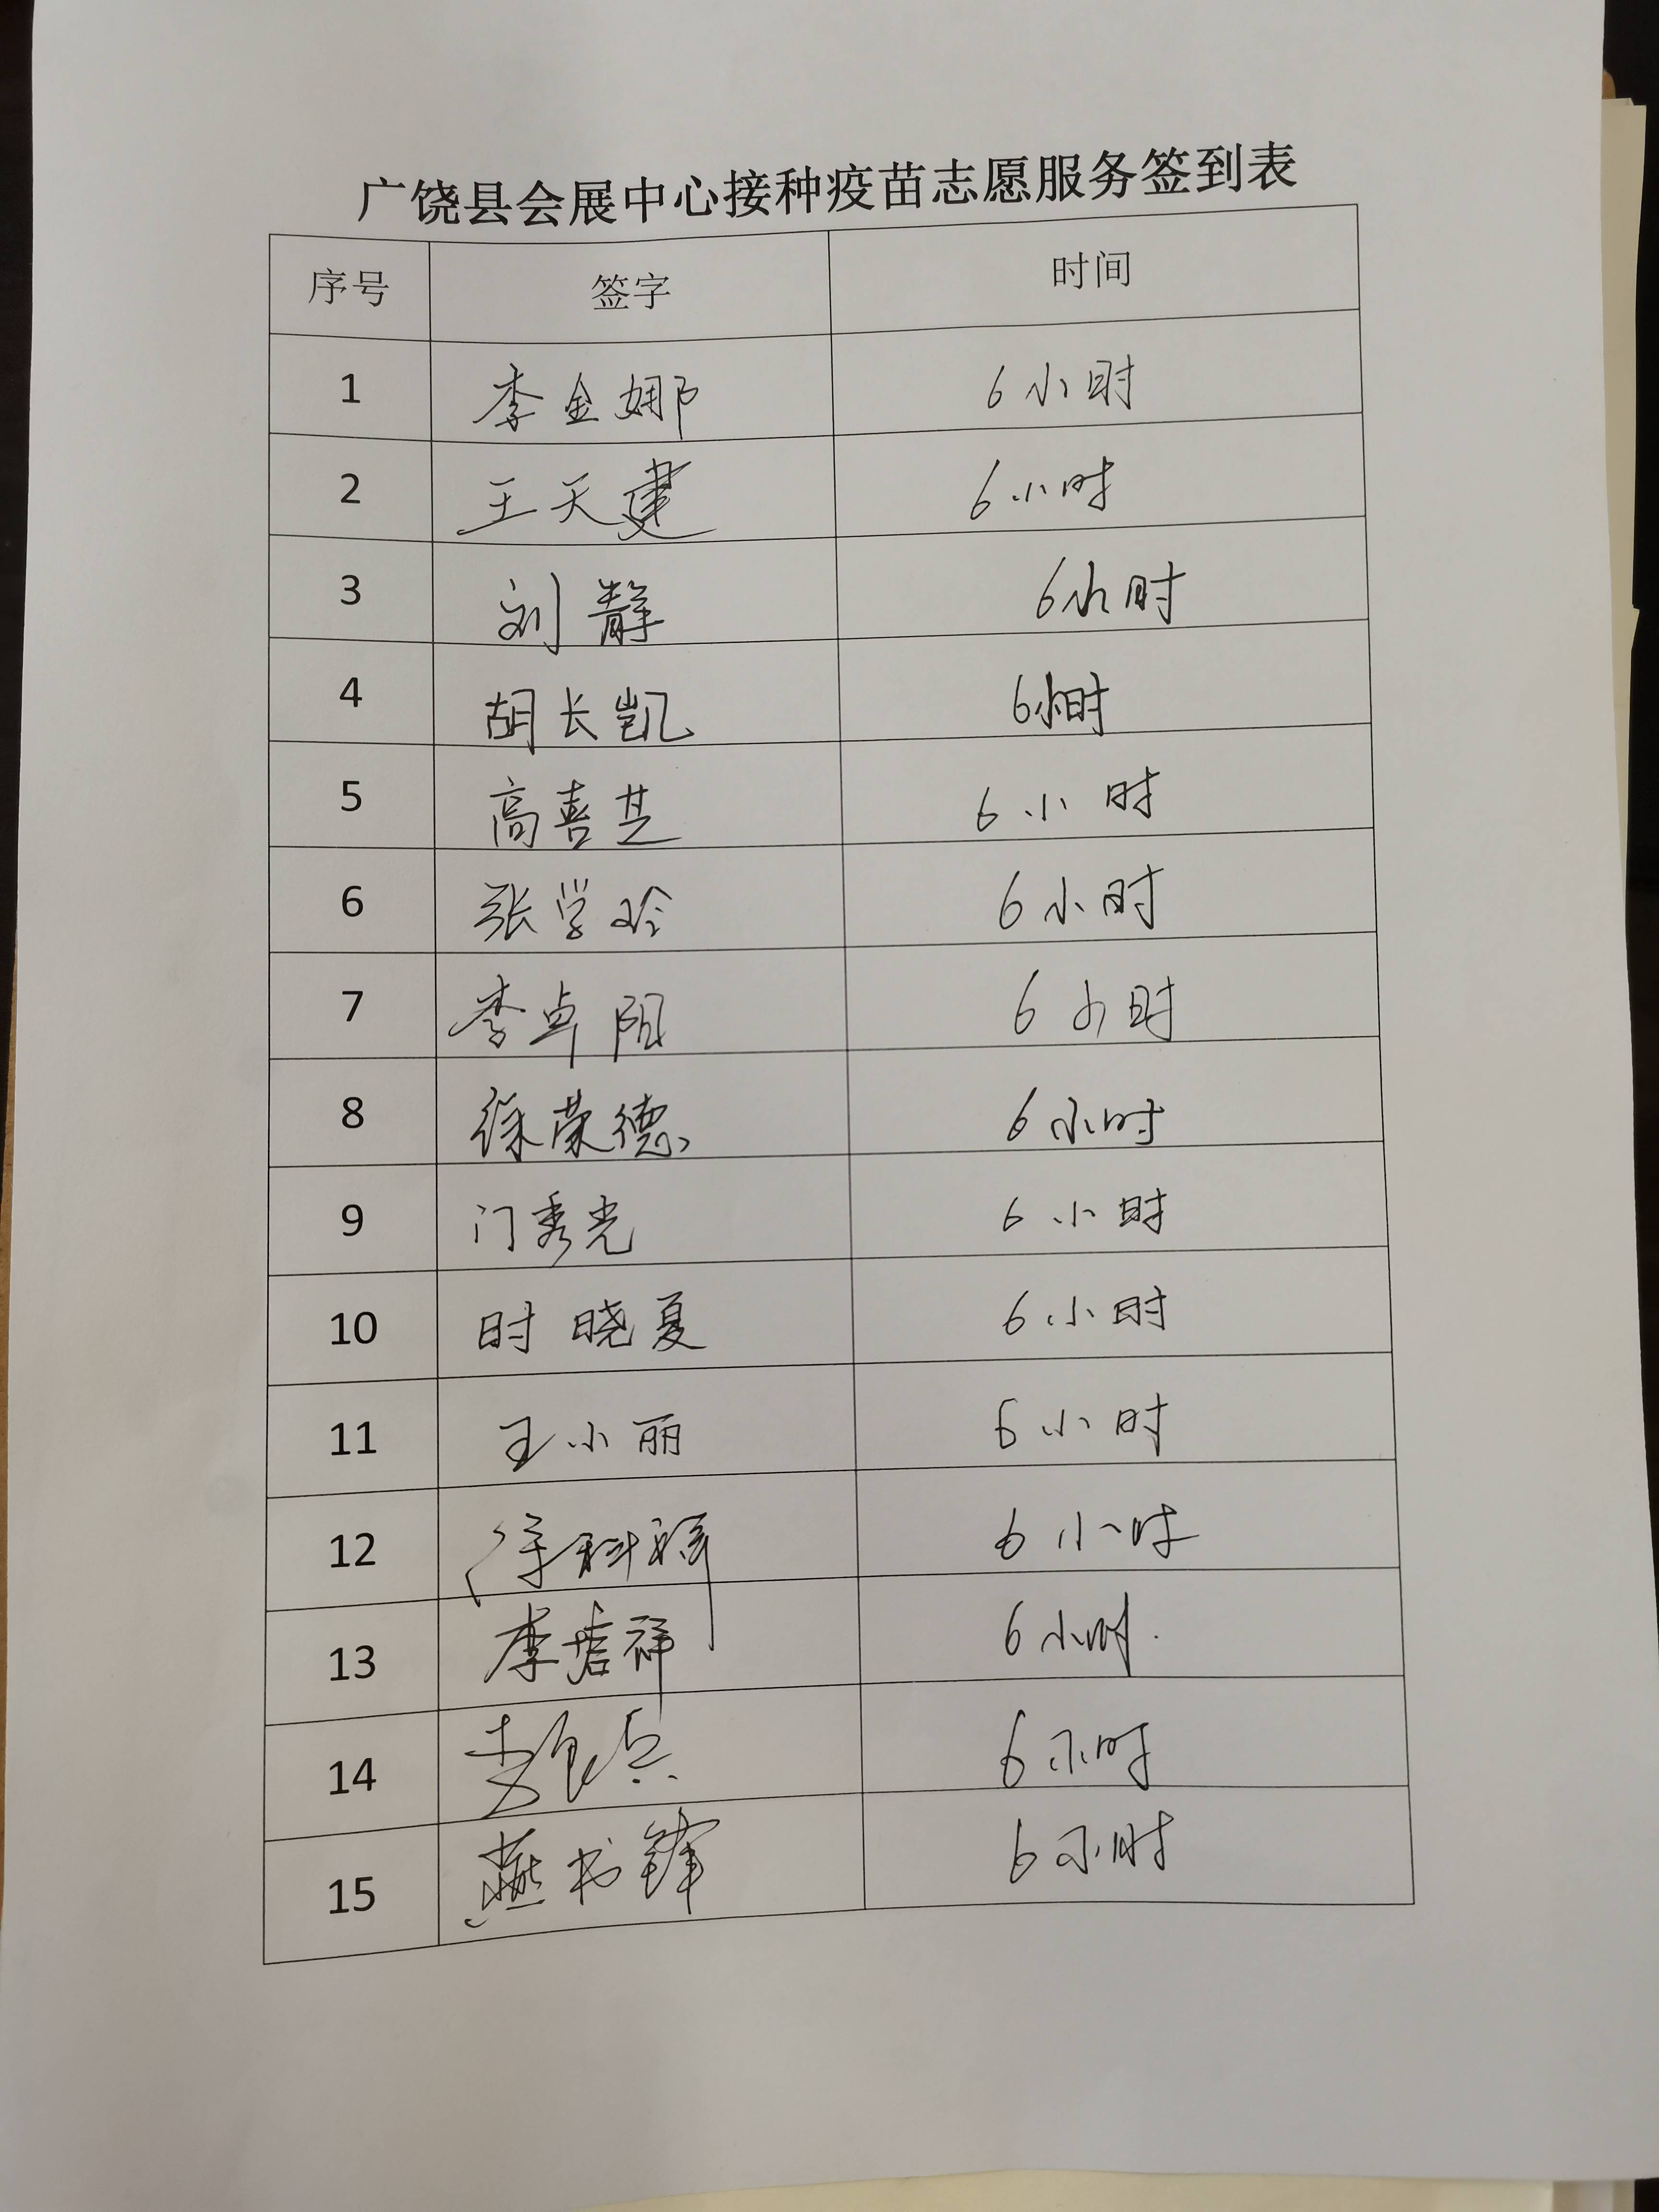 广饶县会展中心接种疫苗志愿服务签到表
序号 签字 时间
1 李金娜 6小时
2 王天建 6小时
3 刘静 6小时
4 胡长凯 6小时
5 高喜芝 6小时
6 张学玲 6小时
7 李卓阳 6小时
8 徐荣德 6小时
9 门秀光 6小时
10 时晓夏 6小时
11 王小丽 6小时
12 6小时
13 李培祥 6小时
14 6小时
15 燕书锋 6小时